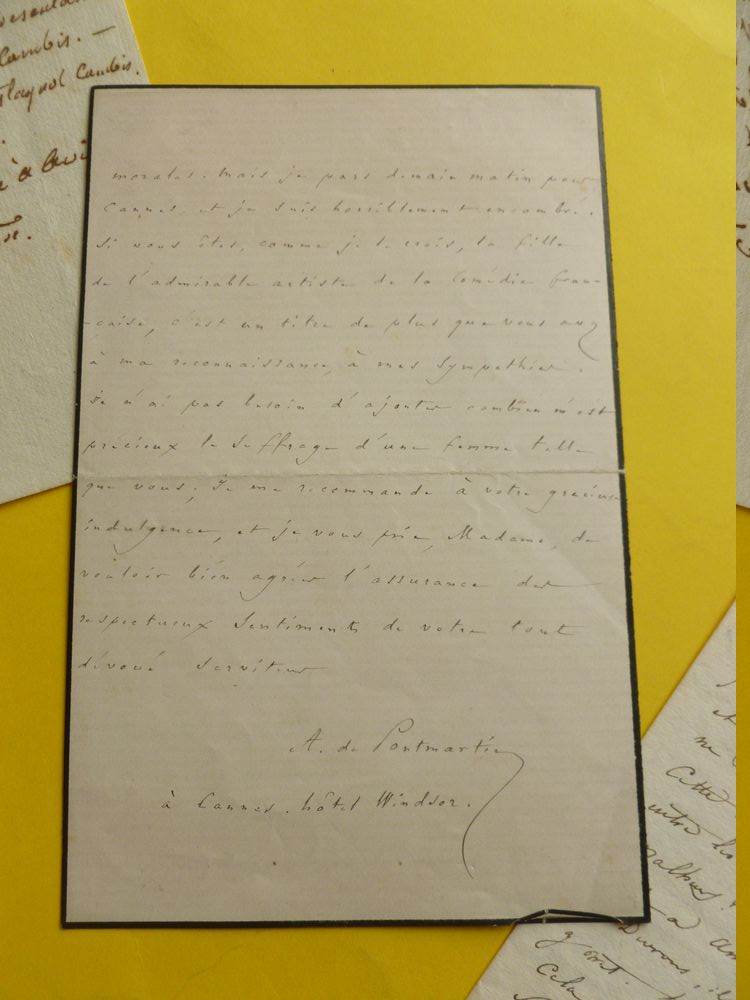 morales. Mais je pars demain matin pour
Cannes, et je suis horriblement encombré.
Si vous êtes, comme je le crois, la fille
de l'admirable artiste de la Comédie fran-
-çaise, c'est un titre de plus que vous avez
à ma reconnaissance, à mes sympathies.
Je n'ai pas besoin d'ajouter combien m'est
précieux le suffrage d'une femme telle
que vous; je me recommande à votre gracieuse
indulgence, et je vous prie, Madame, de
vouloir bien agréer l'assurance des
respectueux sentiments de votre tout
dévoué serviteur
A. de Pontmartin
à Cannes. hôtel Windsor.
Cambis. —
Cambis.
et
Cette
entre
Cela